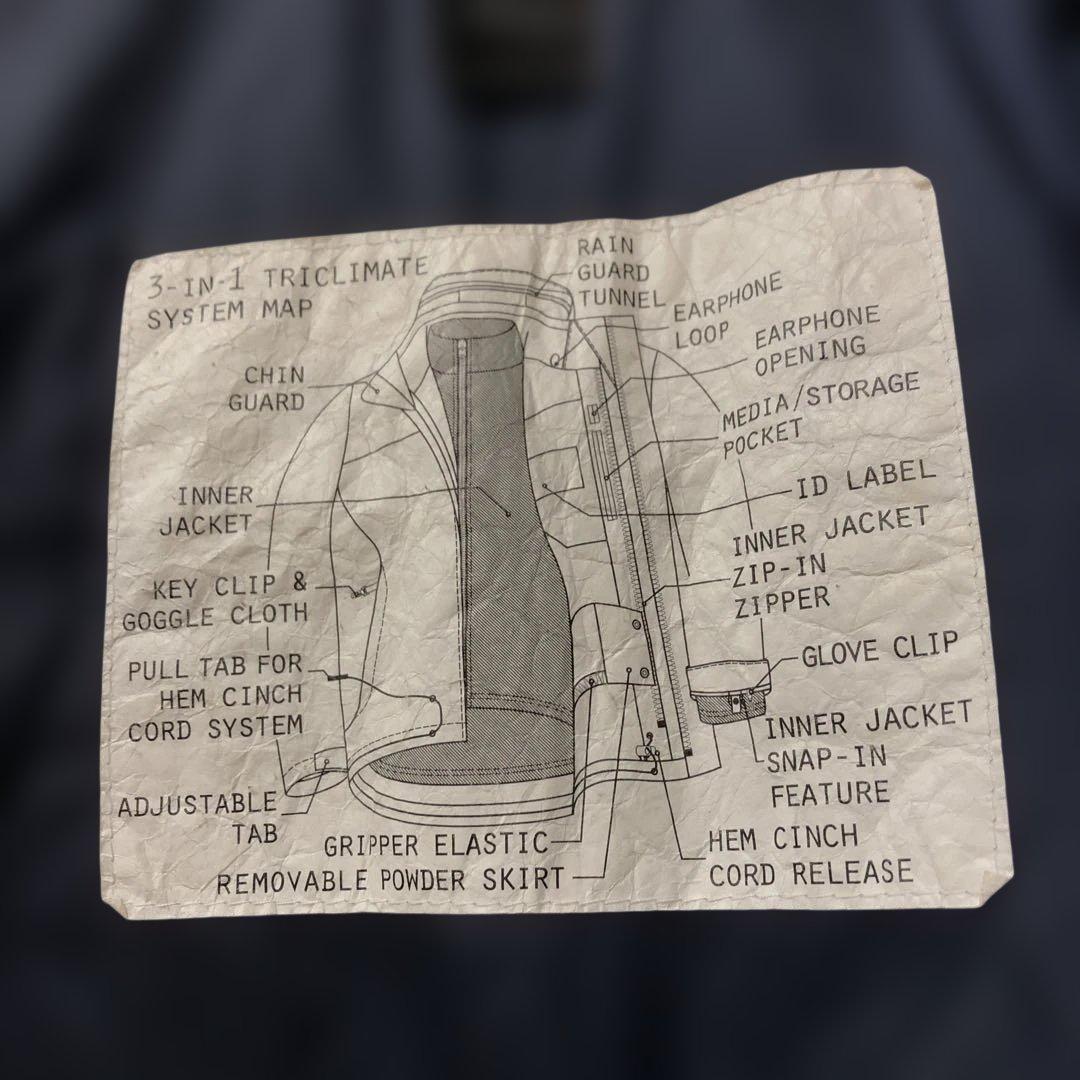 3-IN-1 TRICLIMATE
SYSTEM MAP
RAIN
GUARD
TUNNEL
EARPHONE
LOOP
EARPHONE
OPENING
CHIN
GUARD
MEDIA/STORAGE
POCKET
INNER
JACKET
ID LABEL
INNER JACKET
ZIP-IN
ZIPPER
KEY CLIP &
GOGGLE CLOTH
PULL TAB FOR
HEM CINCH
CORD SYSTEM
GLOVE CLIP
INNER JACKET
SNAP-IN
FEATURE
ADJUSTABLE
TAB
GRIPPER ELASTIC
REMOVABLE POWDER SKIRT
HEM CINCH
CORD RELEASE